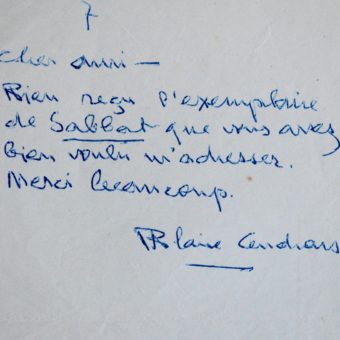 7
Cher ami —
Bien reçu l'exemplaire
de Sabbat que vous avez
bien voulu m'adresser.
Merci beaucoup.
Blaise Cendrars